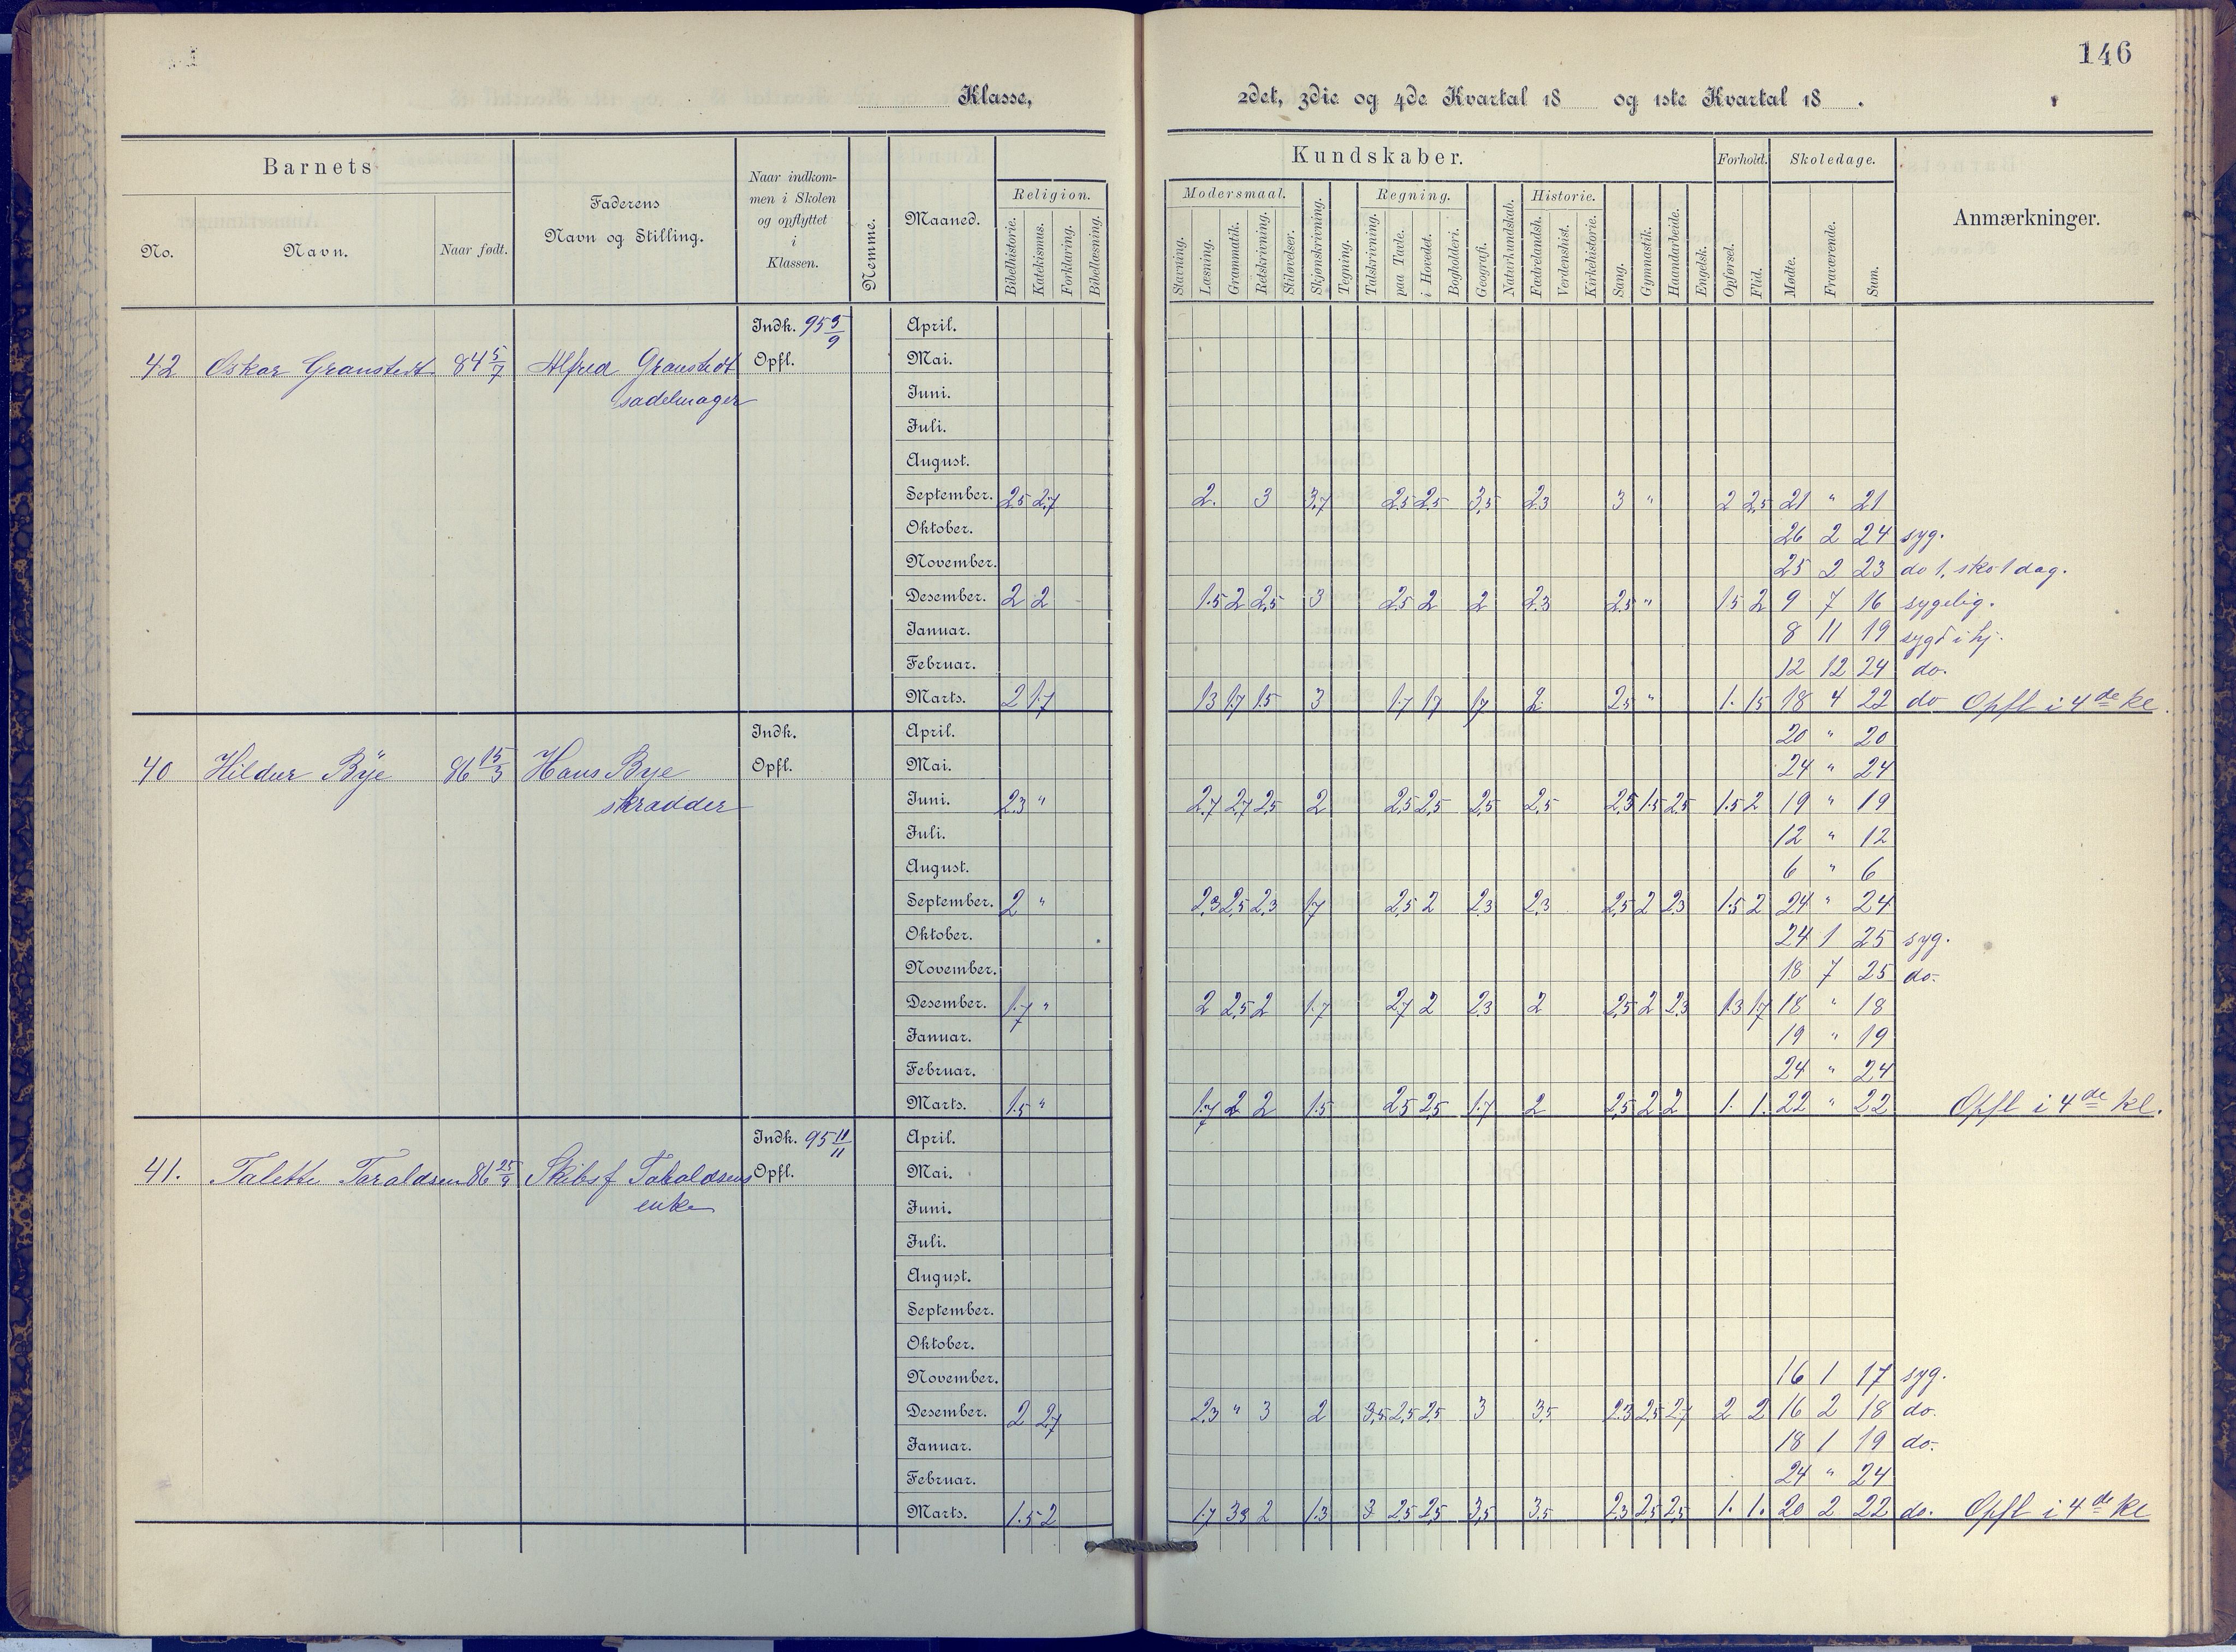 146
Klasse, 2det, 3die og 4de Kvartal 18 og 1ste Kvartal 18 .
Barnets
Faderens Navn og Stilling.
Naar indkommen i Skolen og opflyttet i Klassen.
Nemme.
Maaned.
Kundskaber.
Forhold.
Skoledage.
Anmærkninger.
No. Navn. Naar født.
Religion. Modersmaal. Regning. Historie.
Bibelhistorie. Katekismus. Forklaring. Bibellæsning. Stavning. Læsning. Grammatik. Retskrivning. Stiløvelser. Skjønskrivning. Tegning. Talskrivning. paa Tavle. i Hovedet. Bogholderi. Geografi. Naturkundskab. Fædrelandsh. Verdenshist. Kirkehistorie. Sang. Gymnastik. Haandarbeide. Engelsk. Opførsel. Flid. Mødte. Fraværende. Sum.
Indk. 95 5/9 April.
42 Oskar Granstedt 84 5/7 Alfred Granstedt Opfl. Mai.
sadelmager Juni.
Juli.
August.
September. 2.5 2.7 2. 3 3.7 2.5 2.5 3.5 2.3 3 " 2 2.5 21 " 21
Oktober. 26 2 24 syg.
November. 25 2 23 do 1, sko 1 dag.
Desember. 2 2 1.5 2 2.5 3 2.5 2 2 2.3 2.5 " 1.5 2 9 7 16 sygelig.
Januar. 8 11 19 sygd i hj.
Februar. 12 12 24 do.
Marts. 2 1.7 1.3 1.7 1.5 3 1.7 1.7 1.7 2. 2.5 " 1. 1.5 18 4 22 do Opfl i 4de kl.
Indk. April. 20 " 20
40 Hildur Bÿe 86 15/3 Hans Bye Opfl. Mai. 24 " 24
skrædder Juni. 2.3 " 2.7 2.7 2.5 2 2.5 2.5 2.5 2.5 2.5 1.5 2.5 1.5 2 19 " 19
Juli. 12 " 12
August. 6 " 6
September. 2 " 2.3 2.5 2.3 1.7 2.5 2 2.3 2.3 2.5 2 2.3 1.5 2 24 " 24
Oktober. 24 1 25 syg.
November. 18 7 25 do.
Desember. 1.7 " 2 2.5 2 1.7 2.7 2 2.3 2 2.5 2 2.3 1.3 1.7 18 " 18
Januar. 19 " 19
Februar. 24 " 24
Marts. 1.5 " 1.7 2 2 1.5 2.5 2.5 1.7 2 2.5 2 2 1. 1. 22 " 22 Opfl i 4de kl.
Indk. 95 11/11 April.
41. Talette Taraldsen 86 25/9 Skibsf Taraldsens Opfl. Mai.
enke Juni.
Juli.
August.
September.
Oktober.
November. 16 1 17 syg.
Desember. 2 2.7 2.3 " 3 2 3.5 2.5 2.5 3 3.5 2.3 2.5 2.7 2 2 16 2 18 do.
Januar. 18 1 19 do.
Februar. 24 " 24
Marts. 1.5 2 1.7 3.3 2 1.3 3 2.5 2.5 3.5 3.5 2.3 2.5 2.5 1. 1. 20 2 22 do. Opfl i 4de kl